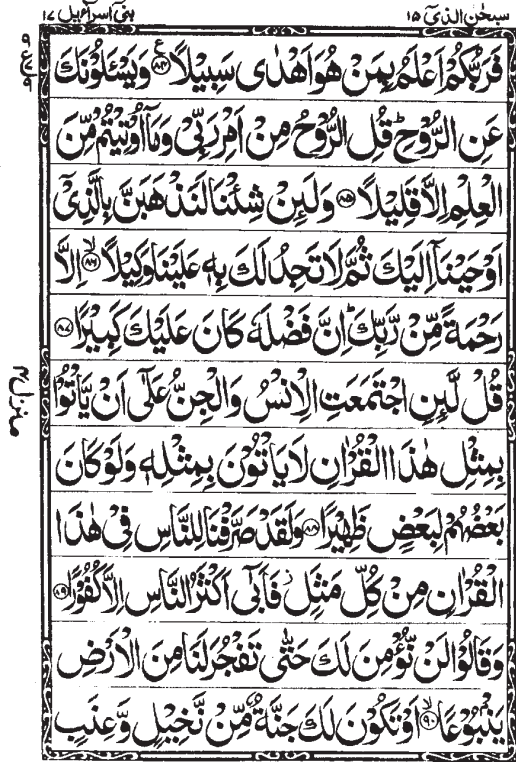 سبحٰن الذیٓ ۱۵
بنیٓ اسرآءیل ۱۷
فَرَبُّكُمْ اَعْلَمُ بِمَنْ هُوَ اَهْدٰى سَبِيْلًا ﴿۸۴﴾ ع وَيَسْـَٔلُوْنَكَ
عَنِ الرُّوْحِ ؕ قُلِ الرُّوْحُ مِنْ اَمْرِ رَبِّىْ وَمَآ اُوْتِيْتُمْ مِّنَ
الْعِلْمِ اِلَّا قَلِيْلًا ﴿۸۵﴾ وَلَئِنْ شِئْنَا لَنَذْهَبَنَّ بِالَّذِىْٓ
اَوْحَيْنَآ اِلَيْكَ ثُمَّ لَا تَجِدُ لَكَ بِهٖ عَلَيْنَا وَكِيْلًا ۙ﴿۸۶﴾ اِلَّا
رَحْمَةً مِّنْ رَّبِّكَ ؕ اِنَّ فَضْلَهٗ كَانَ عَلَيْكَ كَبِيْرًا ﴿۸۷﴾
قُلْ لَّئِنِ اجْتَمَعَتِ الْاِنْسُ وَالْجِنُّ عَلٰٓى اَنْ يَّاْتُوْا
بِمِثْلِ هٰذَا الْقُرْاٰنِ لَا يَاْتُوْنَ بِمِثْلِهٖ وَلَوْ كَانَ
بَعْضُهُمْ لِبَعْضٍ ظَهِيْرًا ﴿۸۸﴾ وَلَقَدْ صَرَّفْنَا لِلنَّاسِ فِىْ هٰذَا
الْقُرْاٰنِ مِنْ كُلِّ مَثَلٍ ؗ فَاَبٰٓى اَكْثَرُ النَّاسِ اِلَّا كُفُوْرًا ﴿۸۹﴾
وَقَالُوْا لَنْ نُّؤْمِنَ لَكَ حَتّٰى تَفْجُرَ لَنَا مِنَ الْاَرْضِ
يَنْۢبُوْعًا ۙ﴿۹۰﴾ اَوْ تَكُوْنَ لَكَ جَنَّةٌ مِّنْ نَّخِيْلٍ وَّعِنَبٍ
منزل ۴